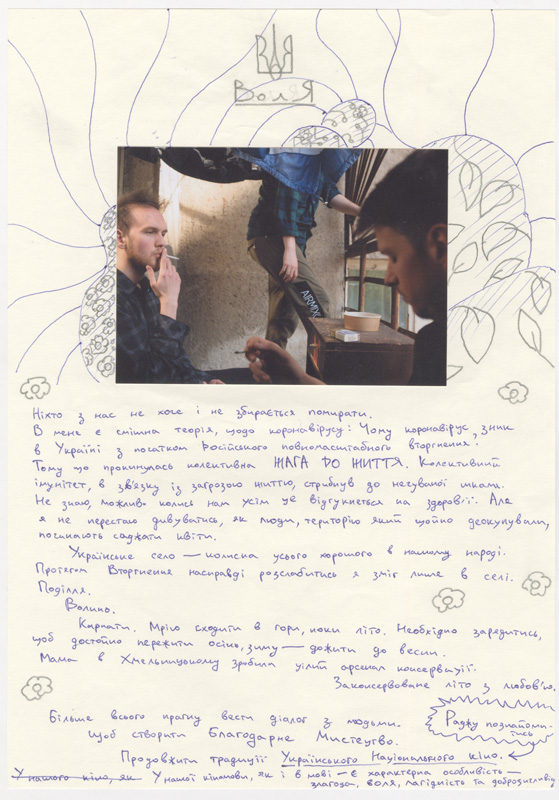 ВОЛЯ
Воля
AIRMAX
Ніхто з нас не хоче і не збирається помирати.
В мене є смішна теорія, щодо коронавірусу: Чому коронавірус зник
в Україні з початком російського повномасштабного вторгнення?
Тому що прокинулась колективна ЖАГА ДО ЖИТТЯ. Колективний
імунітет, в зв'язку із загрозою життю, стрибнув до нечуваної шкали.
Не знаю, можливо колись нам усім це відгукнеться на здоров'ї. Але
я не перестаю дивуватись, як люди, територію яких щойно деокупували,
починають саджати квіти.
Українське село — колиска усього хорошого в нашому народі.
Протягом Вторгнення насправді розслабитись я зміг лише в селі.
Поділля.
Волинь.
Карпати. Мрію сходити в гори, поки літо. Необхідно зарядитись,
щоб достойно пережити осінь, зиму — дожити до весни.
Мама в Хмельницькому зробила цілий арсенал консервації.
Законсервоване літо з любов'ю.
Більше всього прагну вести діалог з людьми.
Щоб створити Благодарне Мистецтво.
Раджу познайоми-
тись
Продовжити традиції Українського Національного кіно.
У нашого кіно, як У нашої кіномови, як і в мові — є характерна особливість —
злагода, воля, лагідність та доброзичливість